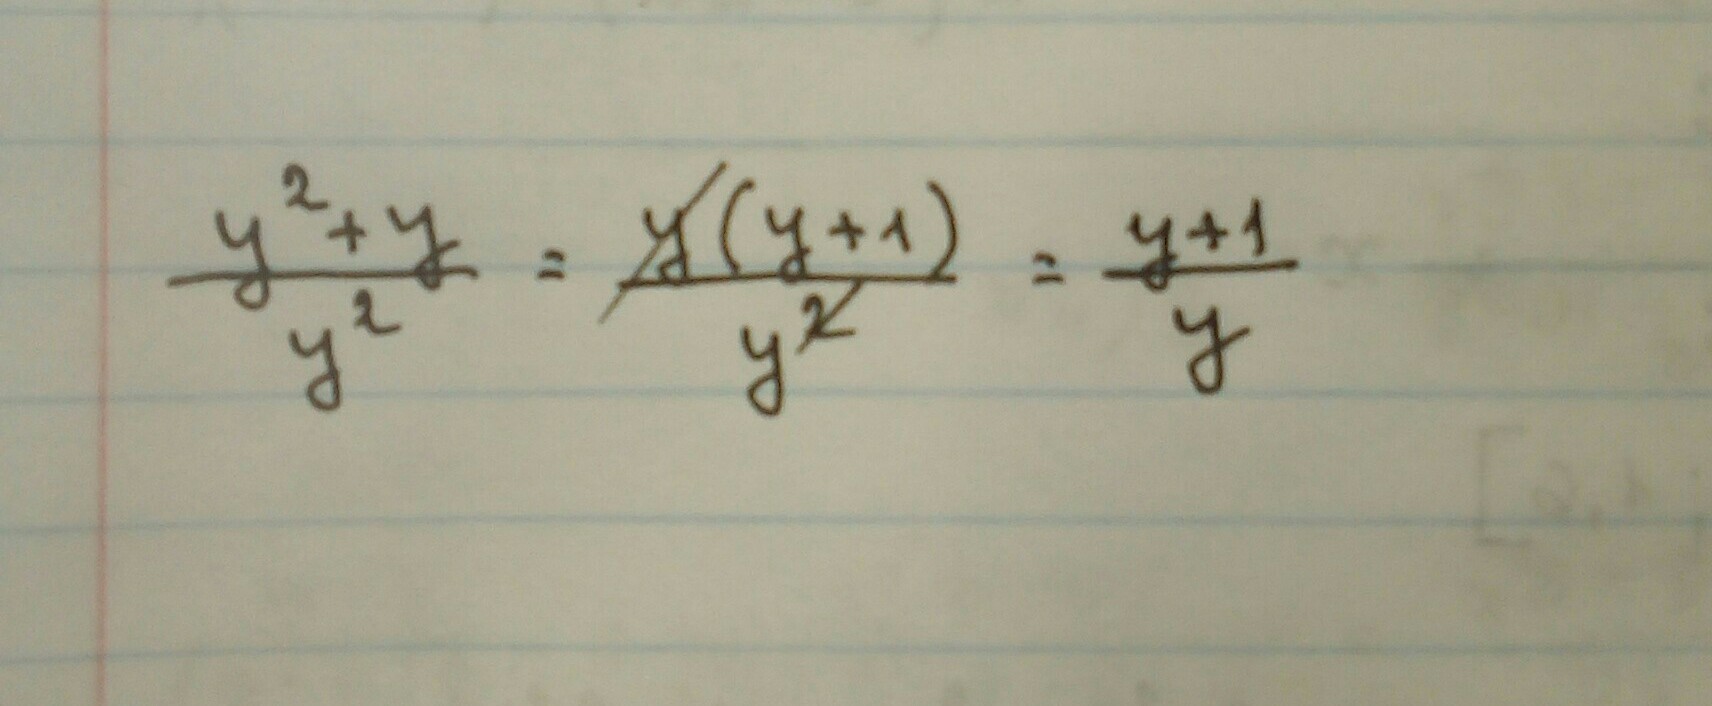 \frac{y^2+y}{y^2} = \frac{y(y+1)}{y^2} = \frac{y+1}{y}